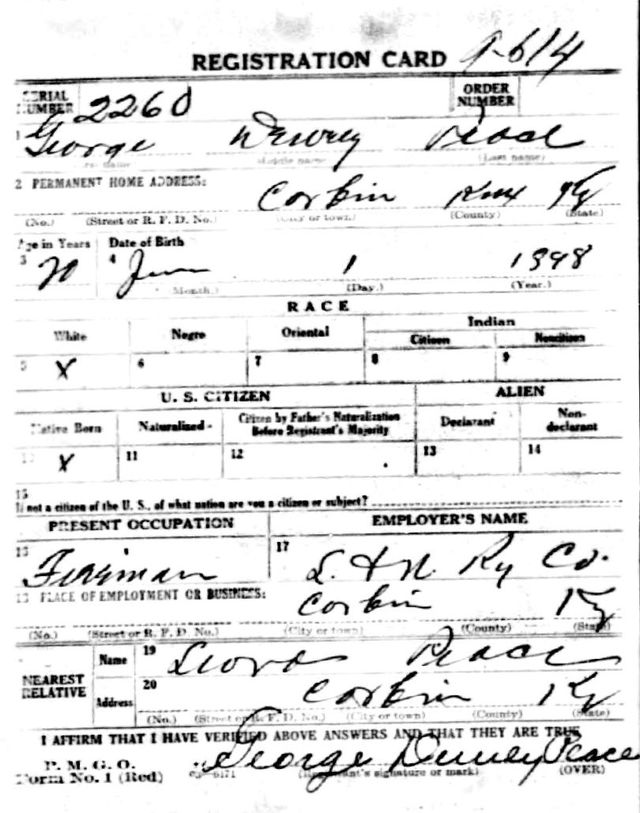 REGISTRATION CARD 9-614
SERIAL NUMBER 2260 ORDER NUMBER
1 George Dewey Peace
Middle name (Last name)
2 PERMANENT HOME ADDRESS:
Corbin Knox Ky
(No.) (Street or R. F. D. No.) (City or town) (County) (State)
Age in Years Date of Birth
3 20 4 June 1 1898
(Month.) (Day.) (Year.)
RACE
White Negro Oriental Indian
Citizen Noncitizen
5 X 6 7 8 9
U. S. CITIZEN ALIEN
Native Born Naturalized Citizen by Father's Naturalization Before Registrant's Majority Declarant Non-declarant
10 X 11 12 13 14
15
If not a citizen of the U. S., of what nation are you a citizen or subject?
PRESENT OCCUPATION EMPLOYER'S NAME
16 Fireman 17 L. & N. Ry Co.
18 PLACE OF EMPLOYMENT OR BUSINESS:
Corbin Ky
(No.) (Street or R. F. D. No.) (City or town) (County) (State)
NEAREST RELATIVE Name 19 Peace
Address 20 Corbin Ky
(No.) (Street or R. F. D. No.) (City or town) (County) (State)
I AFFIRM THAT I HAVE VERIFIED ABOVE ANSWERS AND THAT THEY ARE TRUE
P. M. G. O.
Form No. 1 (Red) George Dewey Peace
(Registrant's signature or mark) (OVER)